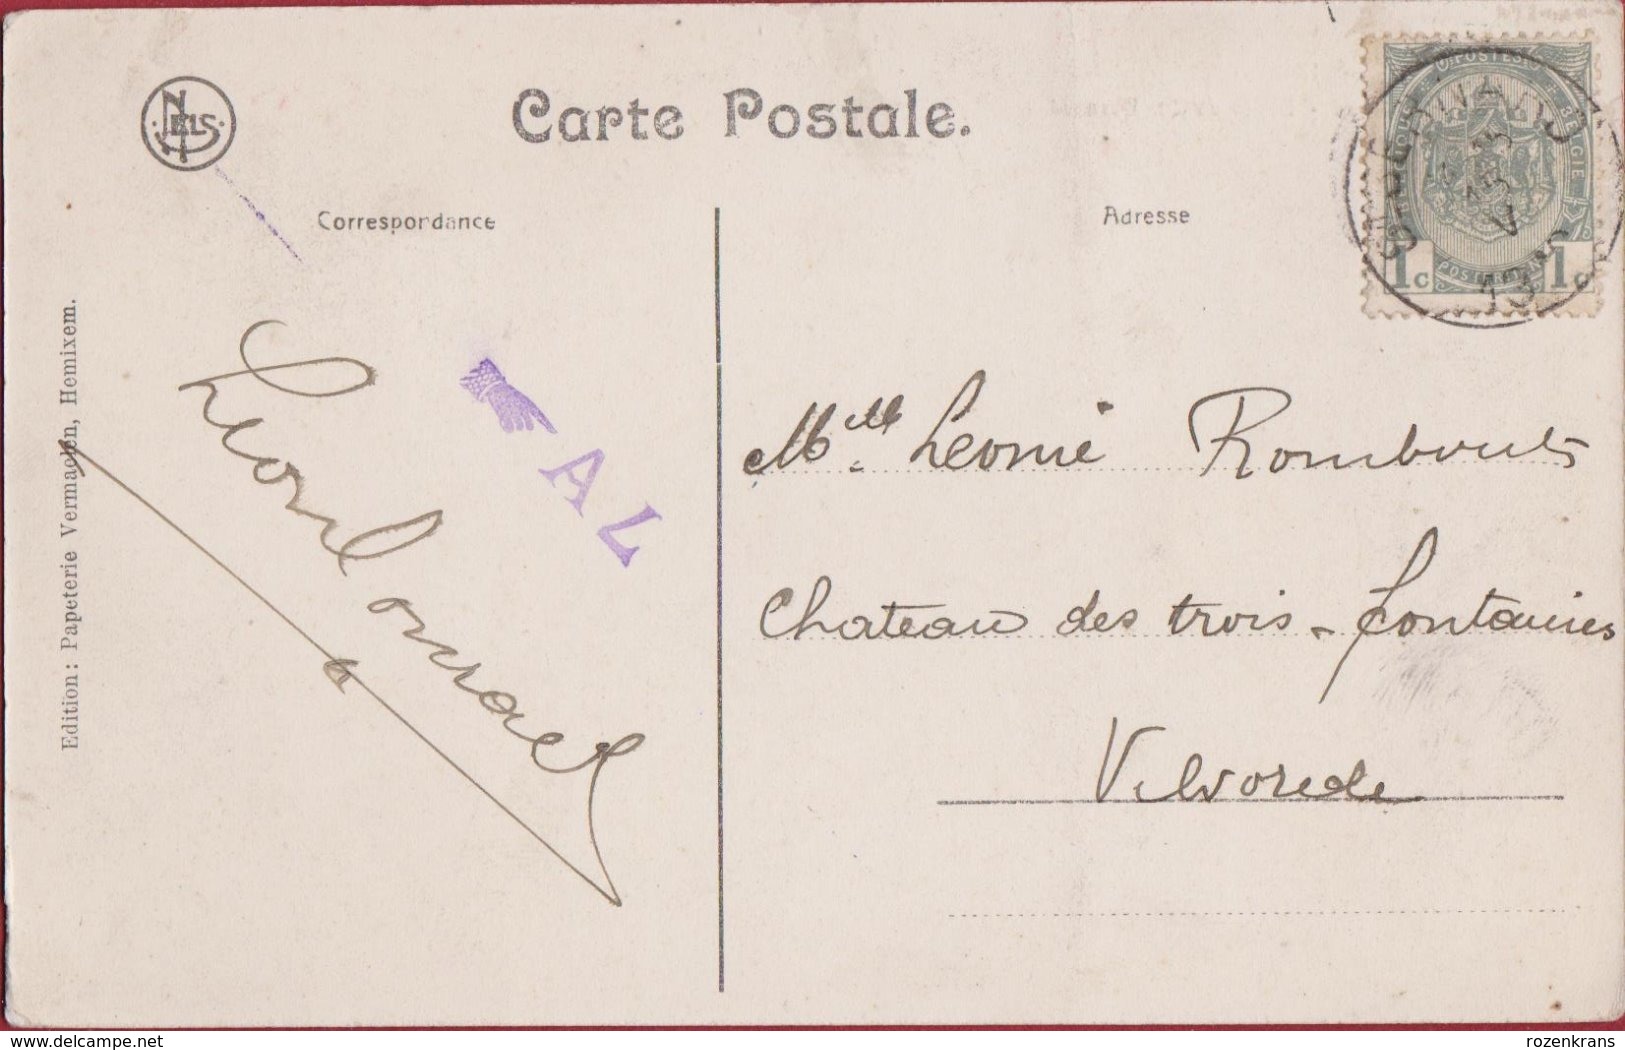 NELS
Carte Postale.
Correspondance
Adresse
POSTES
BELGIE
1c
1c
AL
Edition: Papeterie Vermaelen, Hemixem.
Mlle Leonie Rombouts
Chateau des trois-fontaines
Vilvorde
delcampe.net
rozenkrans